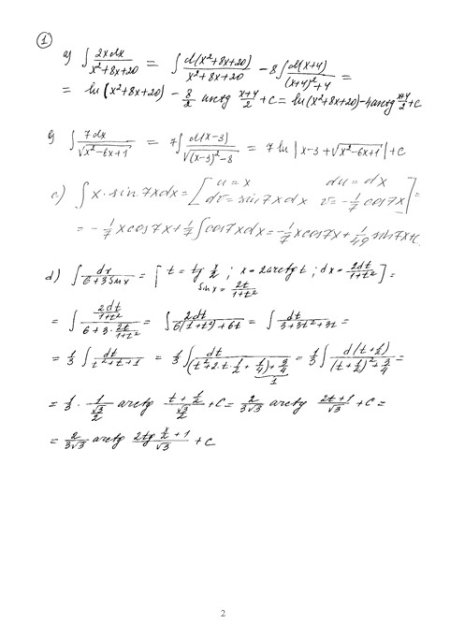 ①
a) ∫ 2xdx / (x²+8x+20) = ∫ d(x²+8x+20) / (x²+8x+20) - 8∫ d(x+4) / ((x+4)²+4) =
= ln(x²+8x+20) - 8/2 arctg (x+4)/2 + C = ln(x²+8x+20) - 4 arctg (x+4)/2 + C
∫ 7dx / √(x²-6x+1) = 7∫ d(x-3) / √((x-3)²-8) = 7 ln |x-3+√(x²-6x+1)| + C
c) ∫ x·sin 7x dx = [ u = x du = dx
dv = sin 7x dx v = -1/7 cos 7x ] =
= -1/7 x cos 7x + 1/7 ∫ cos 7x dx = -1/7 x cos 7x + 1/49 sin 7x + C
d) ∫ dx / (6+3 sin x) = [ t = tg x/2 ; x = 2 arctg t ; dx = 2dt / (1+t²)
sin x = 2t / (1+t²) ] =
= ∫ (2dt / (1+t²)) / (6+3·2t / (1+t²)) = ∫ 2dt / (6(1+t²)+6t) = ∫ dt / (3+3t²+3t) =
= 1/3 ∫ dt / (t²+t+1) = 1/3 ∫ dt / ((t²+2·t·1/2+1/4)+3/4) = 1/3 ∫ d(t+1/2) / ((t+1/2)²+3/4) =
1
= 1/3 · 1/(√3/2) arctg (t+1/2)/(√3/2) + C = 2/(3√3) arctg (2t+1)/√3 + C =
= 2/(3√3) arctg (2tg x/2 + 1)/√3 + C
2